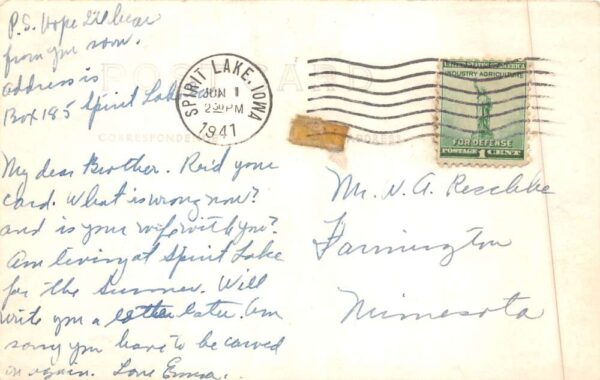 P.S. Hope I'll hear
from you soon.
address is
Box 185 Spirit Lake
POST CARD
CORRESPONDENCE
ADDRESS
SPIRIT LAKE, IOWA
JUN 1
2 30 PM
1941
UNITED STATES OF AMERICA
INDUSTRY AGRICULTURE
FOR DEFENSE
POSTAGE 1 CENT
My dear Brother. Rec'd your
card. What is wrong now?
and is your wife with you?
Am living at Spirit Lake
for the Summer. Will
write you a letter later. Am
sorry you have to be carved
on again. Love Emma.
Mr. N. A.
Farmington
Minnesota